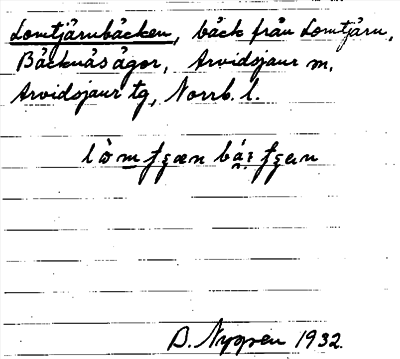 Lomtjärnbäcken, bäck från Lomtjärn,
Bäcknäs ägor, Arvidsjaur m.
Arvidsjaur tg, Norrb. l.
D. Nygren 1932.